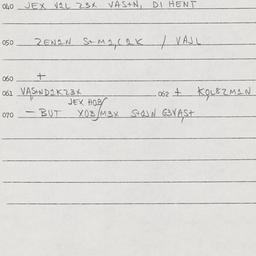 040 JEX V2L Z3X VAS+N, DI HENT
050 ZEN2N S+M2,C2K / VAJL
060 +
061 VAS+ND2KZ3X 062 + KQL8ZM2N
JEX HOB/
070 — BUT XOB/M3X S+2JN G3VAS+